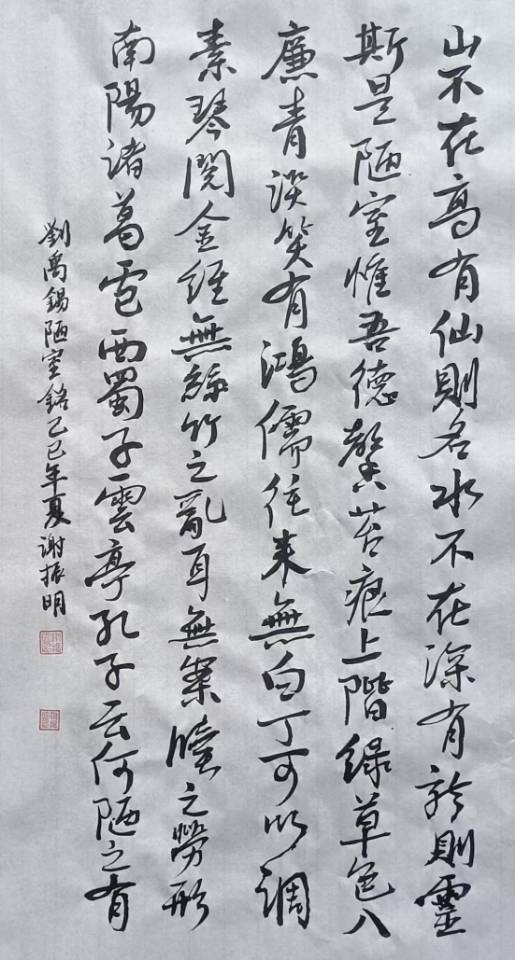 山不在高有仙則名水不在深有龍則靈
斯是陋室惟吾德馨苔痕上階綠草色入
廉青談笑有鴻儒往來無白丁可以調
素琴閱金經無絲竹之亂耳無案牘之勞形
南陽諸葛廬西蜀子雲亭孔子云何陋之有
劉禹錫陋室銘乙巳年夏謝振明